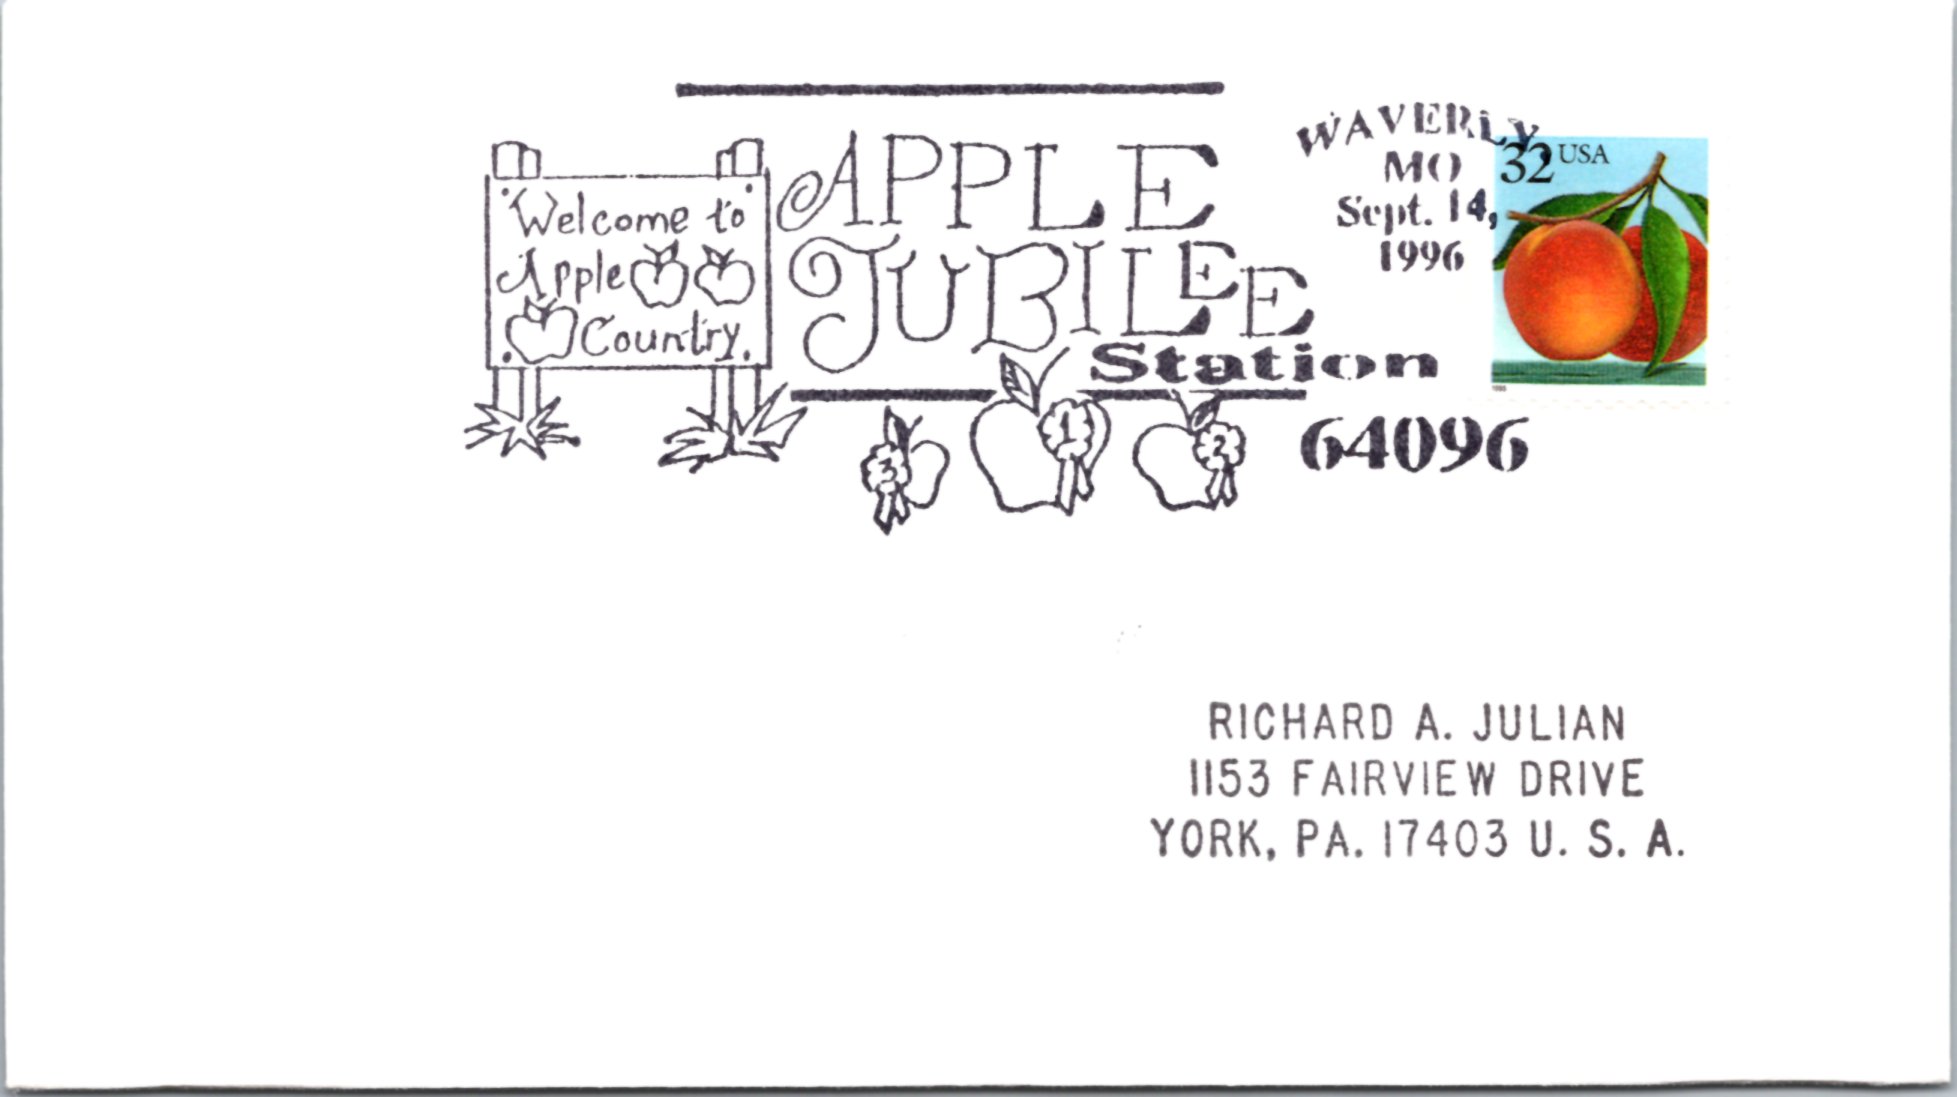 Welcome to
Apple
Country
APPLE
JUBILEE
Station
3
1
2
WAVERLY,
MO
Sept. 14,
1996
64096
32 USA
1995
RICHARD A. JULIAN
1153 FAIRVIEW DRIVE
YORK, PA. 17403 U. S. A.